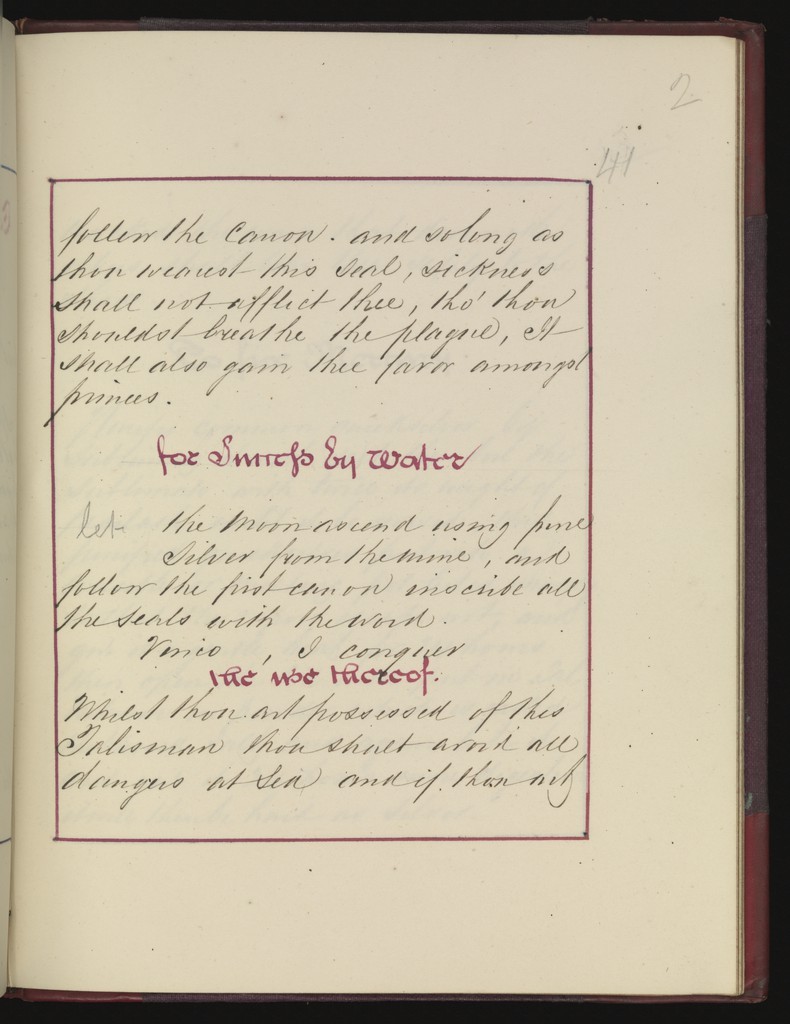 2
41
follow the Canon. and so long as
thou wearest this Seal, sickness
shall not afflict thee, tho' thou
shouldst breathe the plague, It
shall also gain thee favor amongst
princes.
for Success by Water
let the Moon ascend using fine
Silver from the mine, and
follow the first canon inscribe all
the Seals with the word.
Vinco, I conquer
the use thereof.
Whilst thou art possessed of this
Talisman thou shalt avoid all
dangers at Sea and if thou art